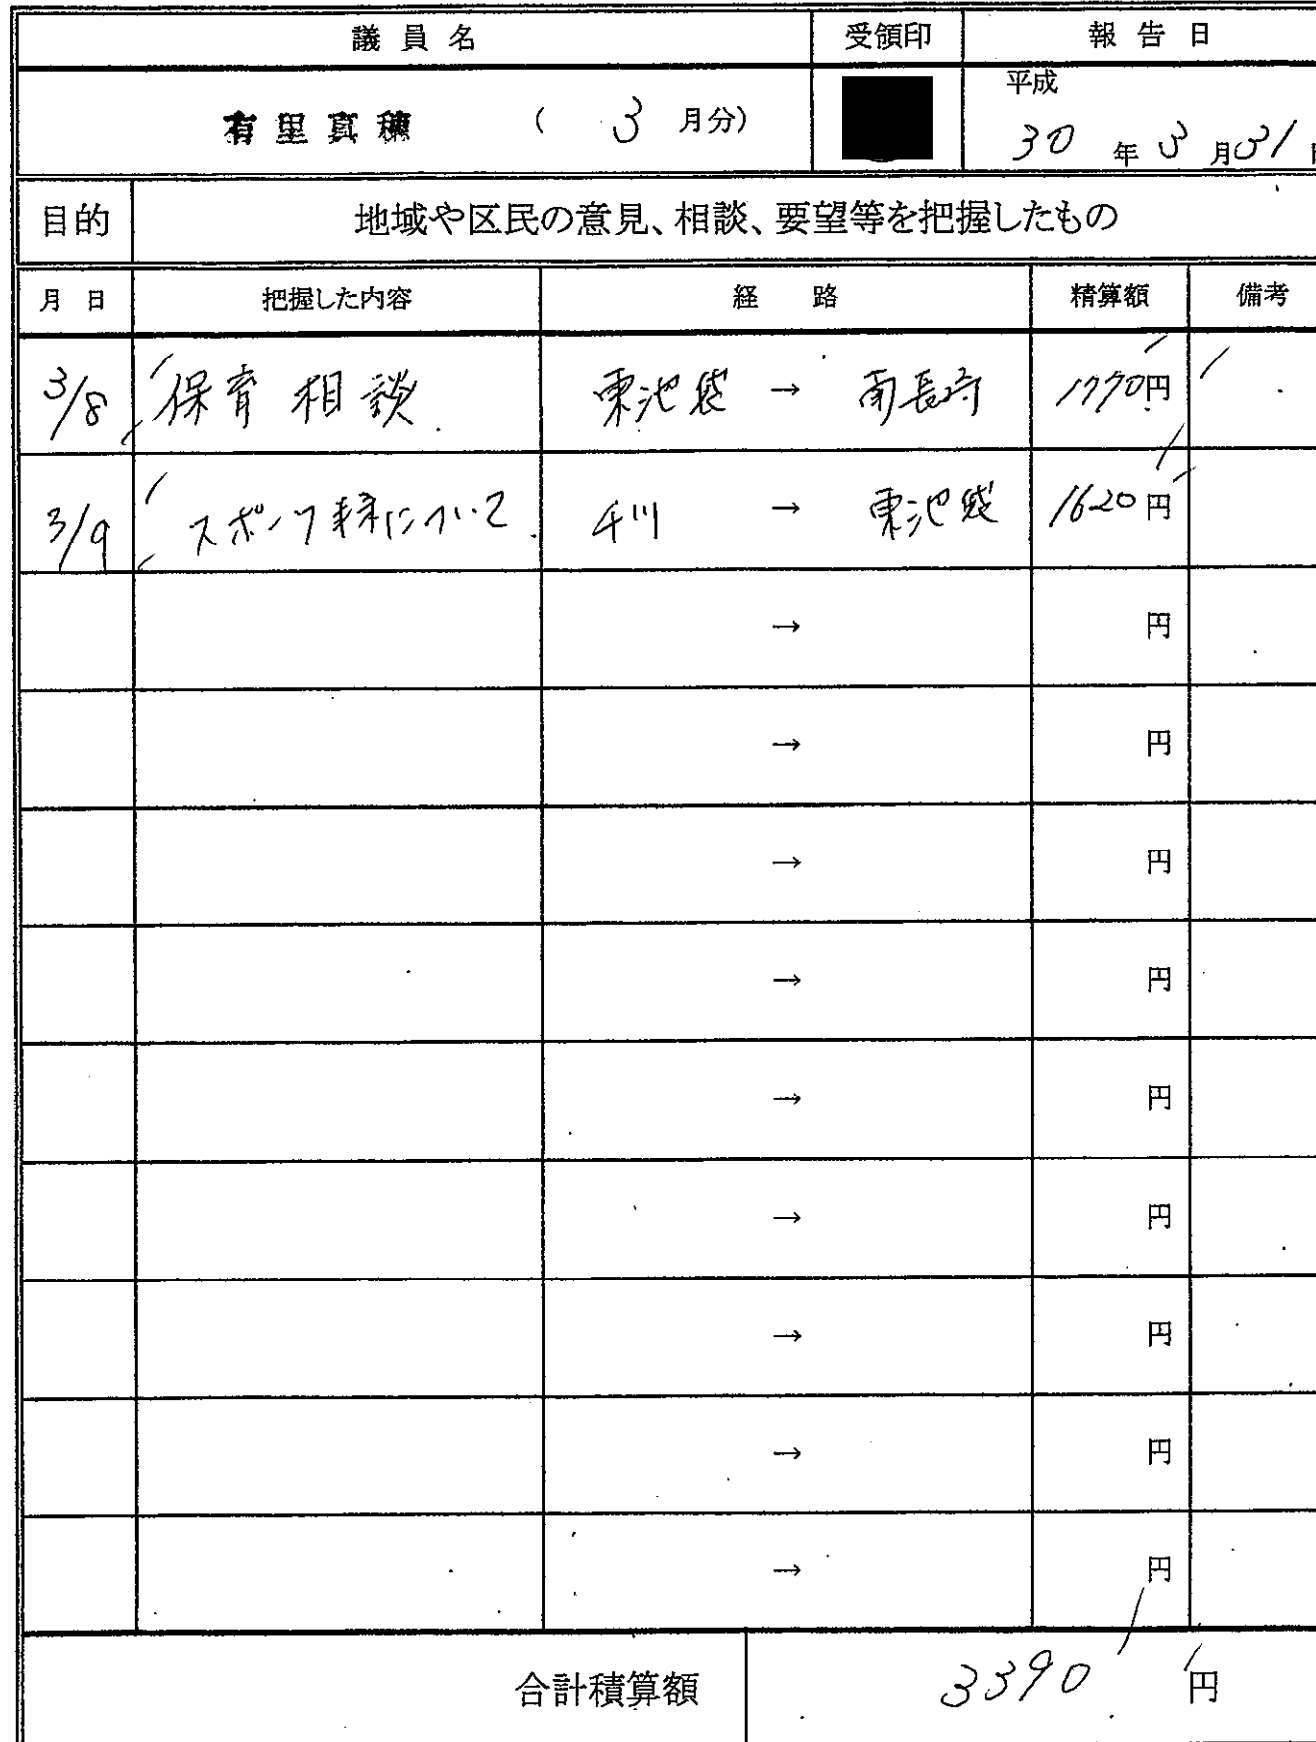 議員名 受領印 報告日
有里真穂 ( 3 月分) 平成
30 年 3 月 31
目的 地域や区民の意見、相談、要望等を把握したもの
月日 把握した内容 経路 精算額 備考
3/8 保育相談 東池袋 → 南長崎 1770円
3/9 スポーツ についいて 千川 → 東池袋 1620円
→ 円
→ 円
→ 円
→ 円
→ 円
→ 円
→ 円
→ 円
→ 円
合計積算額 3390 円